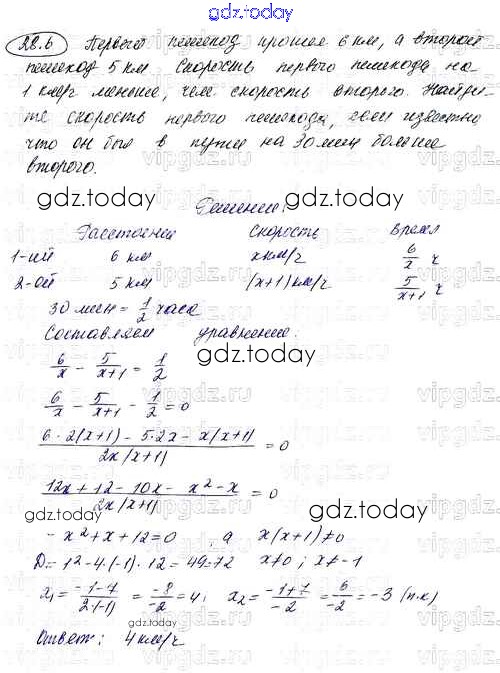 gdz.today
28.6 Первый пешеход прошел 6 км, а второй
пешеход 5 км. Скорость первого пешехода на
1 км/ч меньше, чем скорость второго. Найди-
те скорость первого пешехода, если известно
что он был в пути на 30 мин больше
второго.
gdz.today
Решение:
Расстояние Скорость Время
1-ый 6 км x км/ч 6/x ч
2-ой 5 км (x+1) км/ч 5/x+1 ч
30 мин = 1/2 часа
gdz.today
Составляем уравнение:
6/x - 5/x+1 = 1/2
gdz.today
6/x - 5/x+1 - 1/2 = 0
6·2(x+1) - 5·2x - x(x+1)/2x(x+1) = 0
12x + 12 - 10x - x² - x/2x(x+1) = 0
- x² + x + 12 = 0, а x(x+1) ≠ 0
D = 1² - 4·(-1)·12 = 49 = 7² x ≠ 0; x ≠ -1
x₁ = -1-7/2·(-1) = -8/-2 = 4; x₂ = -1+7/-2 = 6/-2 = -3 (п.к)
Ответ: 4 км/ч
gdz.today
vipgdz.ru